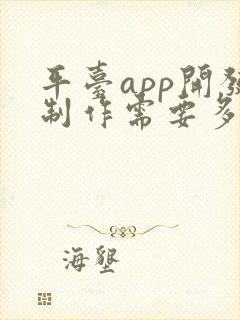 平臺app開發
制作需要多
海墾